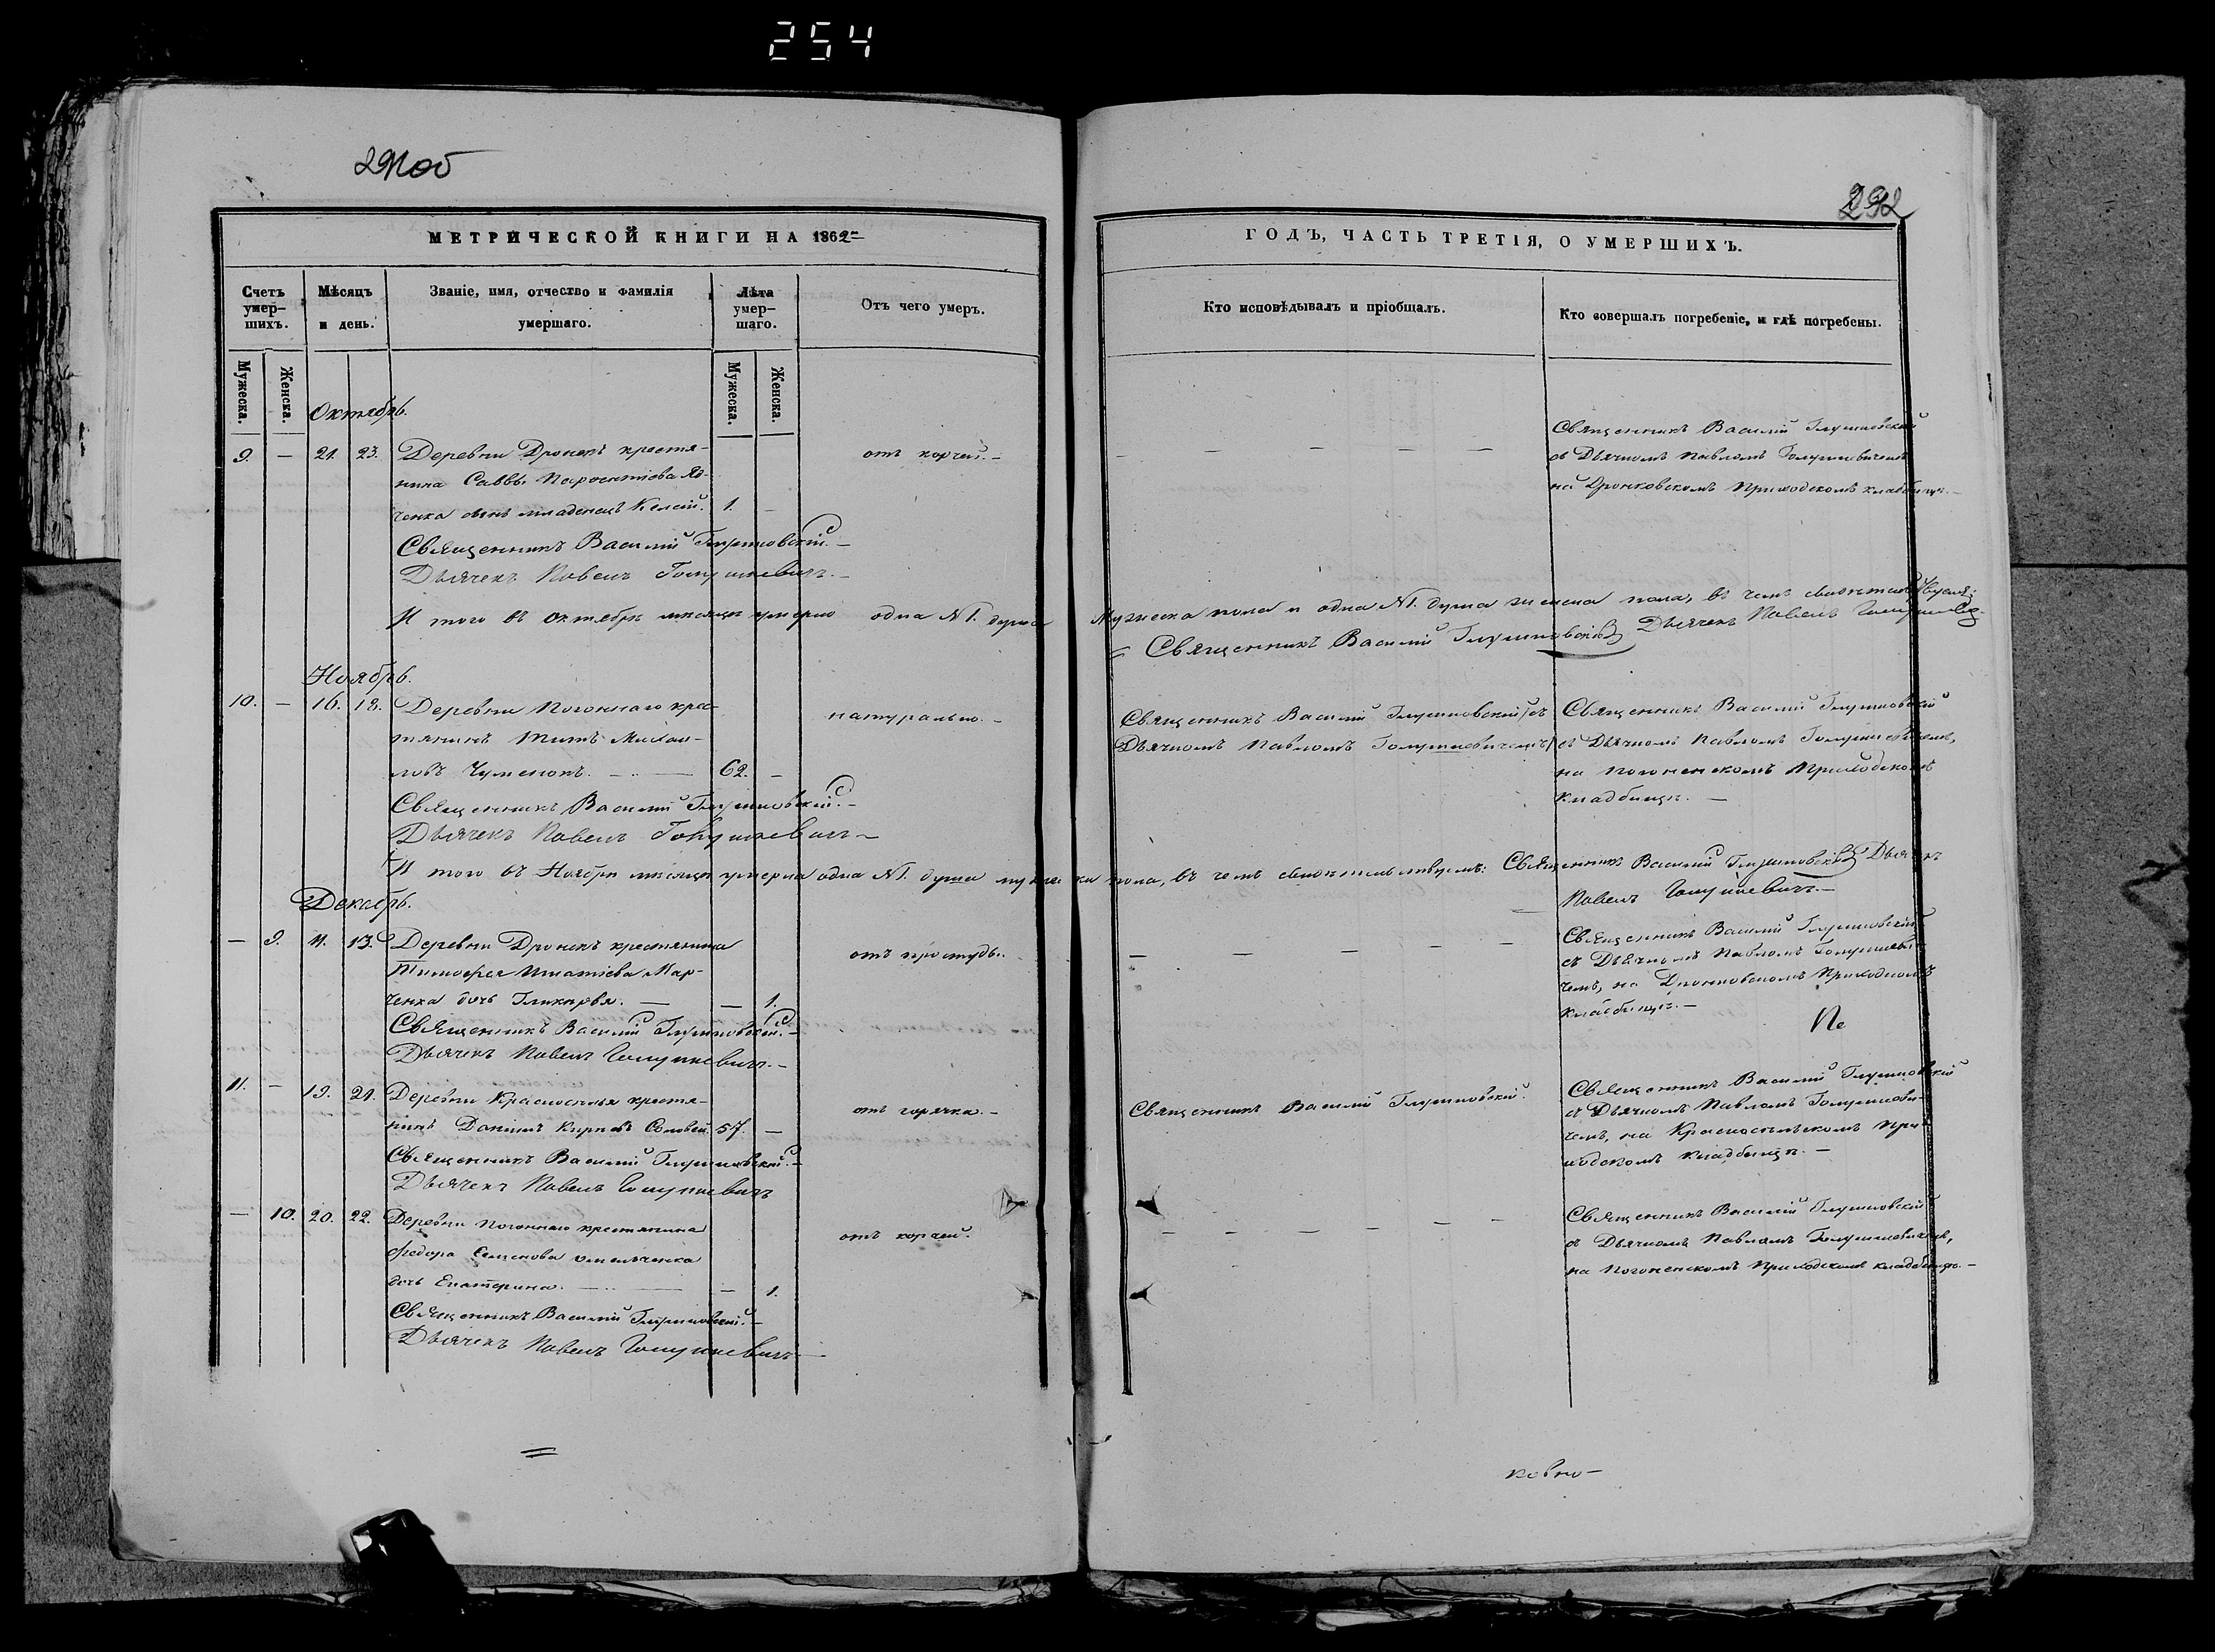 254
291об
292
МЕТРИЧЕСКОЙ КНИГИ НА 1862
ГОДЪ, ЧАСТЬ ТРЕТІЯ, О УМЕРШИХЪ.
Счетъ умер-шихъ.
Мѣсяцъ и день.
Званіе, имя, отчество и фамилія умершаго.
Лѣта умер-шаго.
Отъ чего умеръ.
Кто исповѣдывалъ и пріобщалъ.
Кто совершалъ погребеніе, и гдѣ погребены.
Мужеска.
Женска.
Мужеска.
Женска.
Октябрь.
9. — 21. 23. Деревни Дронекъ крестья-
нина Саввы
ченка сынъ младенецъ 1. —
отъ корчей. —
Священникъ Василій Глушковскій
съ Дьячкомъ Павломъ Голушкевичемъ
на Дронковскомъ приходскомъ кладбищѣ. —
Священникъ Василій Глушковскій. —
Дьячекъ Павелъ Голушкевичъ. —
И того въ Октябрѣ мѣсяцѣ умерло одна №1. душа мужеска пола и одна №1. душа женска пола, въ чемъ
Священникъ Василій Глушковскій Дьячекъ Павелъ Голушкевичъ
Ноябрь.
10. — 16. 18. Деревни Погоннаго крес-
тянинъ Титъ Михай-
ловъ — 62. —
натурально. —
Священникъ Василій Глушковскій съ
Дьячкомъ Павломъ Голушкевичемъ
Священникъ Василій Глушковскій
съ Дьячкомъ Павломъ Голушкевичемъ,
на Погоненскомъ приходскомъ
кладбищѣ. —
Священникъ Василій Глушковскій. —
Дьячекъ Павелъ Голушкевичъ —
И того въ Ноябрѣ мѣсяцѣ умерла одна №1. душа мужеска пола, въ чемъ свидѣтельствуемъ: Священникъ Василій Глушковскій Дьячекъ
Павелъ Голушкевичъ. —
Декабрь.
— 9. 11. 13. Деревни Дронекъ крестянина
Тимофея Игнатіева Мар-
ченка дочь Гликерія. — — 1.
отъ простуды.
Священникъ Василій Глушковскій
съ Дьячкомъ Павломъ Голушкеви-
чемъ, на Дронковскомъ приходскомъ
кладбищѣ. —
Священникъ Василій Глушковскій. —
Дьячекъ Павелъ Голушкевичъ. —
11. — 19. 21. Деревни Красноселья крестя-
нинъ Даніилъ Соловей. 57. —
отъ горячка. —
Священникъ Василій Глушковскій.
Священникъ Василій Глушковскій
съ Дьячкомъ Павломъ Голушкеви-
чемъ, на Красносельскомъ при-
ходскомъ кладбищѣ. —
Священникъ Василій Глушковскій. —
Дьячекъ Павелъ Голушкевичъ
— 10. 20. 22. Деревни Погоннаго крестянина
Федора Семенова Омельченка
дочь Екатерина. — — 1.
отъ корчей.
Священникъ Василій Глушковскій
съ Дьячкомъ Павломъ Голушкевичемъ,
на Погоненскомъ приходскомъ кладбищѣ. —
Священникъ Василій Глушковскій. —
Дьячекъ Павелъ Голушкевичъ —